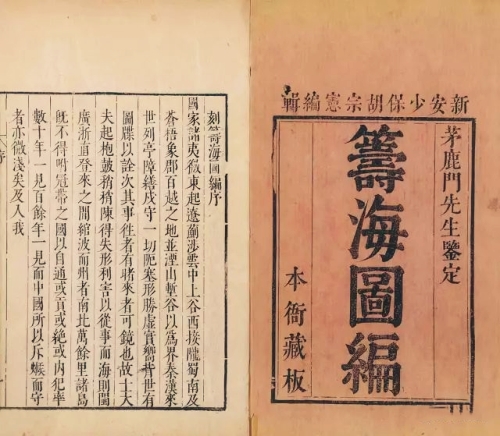 新安少保胡宗憲編輯
茅鹿門先生鑒定
籌海圖編
本衙藏板
刻籌海圖編序
國家諸夷徼東起遼薊涉雲中上谷西接隴蜀南及
蒼梧象郡百越之地並湮山塹谷以爲界秦漢來
世列亭障繕戍守一切阨塞形勝虛實嚮背世有
圖牒以詮次其事徃者有睹來者可鏡也故士大
夫起枹鼓陳得失形利害以從事而海則閩
廣浙直登來之間綰波而州者南北萬餘里諸島
既不得附冠帶之國以自通或貢或絶或内犯率
數十年一見百餘年一見而中國所以斥堠而守
者亦微淺矣及入我